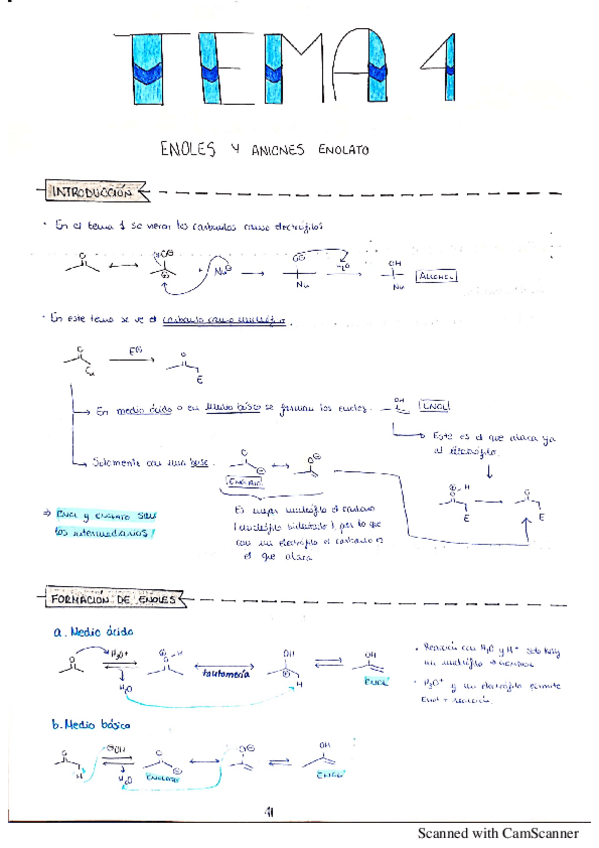 TEMA 4
ENOLES Y ANIONES ENOLATO
INTRODUCCIÓN
· En el tema 1 se vieron los carbonilos como electrófilos
O O⊖ ⊕ + Nu⊖ O⊖ Nu H₂O OH Nu ALCOHOL
· En este tema se ve el carbonilo como nucleófilo.
O E⊕ O E
En medio ácido o en medio básico se forman los enoles. OH ENOL
Este es el que ataca ya
al electrófilo.
Solamente con una base. O ⊖ O⊖
⊕ H O E O E
⇒ Enol y enolato son
los intermediarios!
Es mejor nucleófilo el carbono
por lo que
con un electrófilo el carbono es
el que ataca
FORMACIÓN DE ENOLES
a. Medio ácido
O H₃O⁺ H₂O ⊕ H O tautomería OH ⊕ H OH ENOL
· Reacción con H₂O y H⁺ solo hay
un nucleófilo
· H₃O⁺ y un electrófilo permite
Enol + reacción.
b. Medio básico
O H ⊖OH H₂O O ⊖ ENOLATO O⊖ OH ENOL
41
Scanned with CamScanner